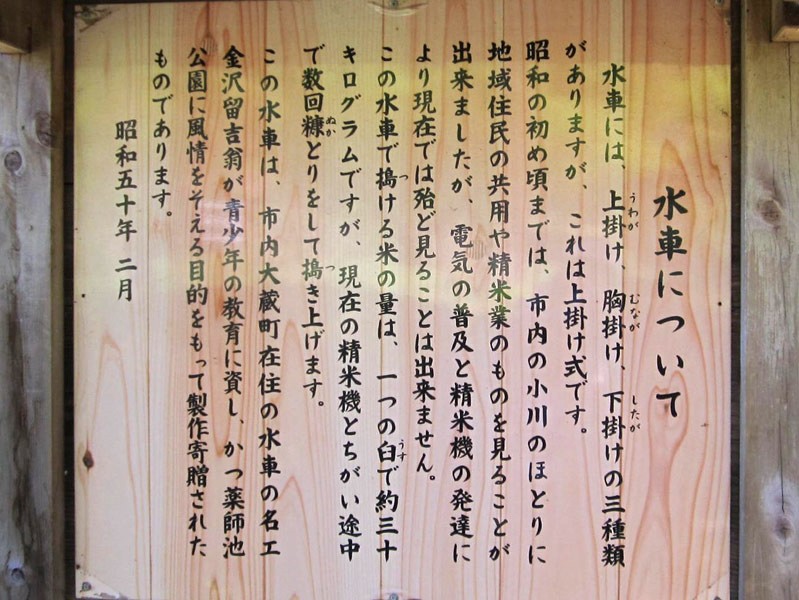 水車について
水車には、上掛け、胸掛け、下掛けの三種類
うわが
むなが
したが
がありますが、これは上掛け式です。
昭和の初め頃までは、市内の小川のほとりに
地域住民の共用や精米業のものを見ることが
出来ましたが、電気の普及と精米機の発達に
より現在では殆ど見ることは出来ません。
この水車で搗ける米の量は、一つの臼で約三十
つ
うす
キログラムですが、現在の精米機とちがい途中
で数回糠とりをして搗き上げます。
ぬか
つ
この水車は、市内大蔵町在住の水車の名工
金沢留吉翁が青少年の教育に資し、かつ薬師池
公園に風情をそえる目的をもって製作寄贈された
ものであります。
昭和五十年 二月